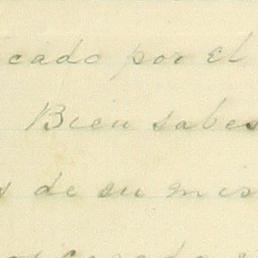 icado por el
Bien sabes
s de su mis